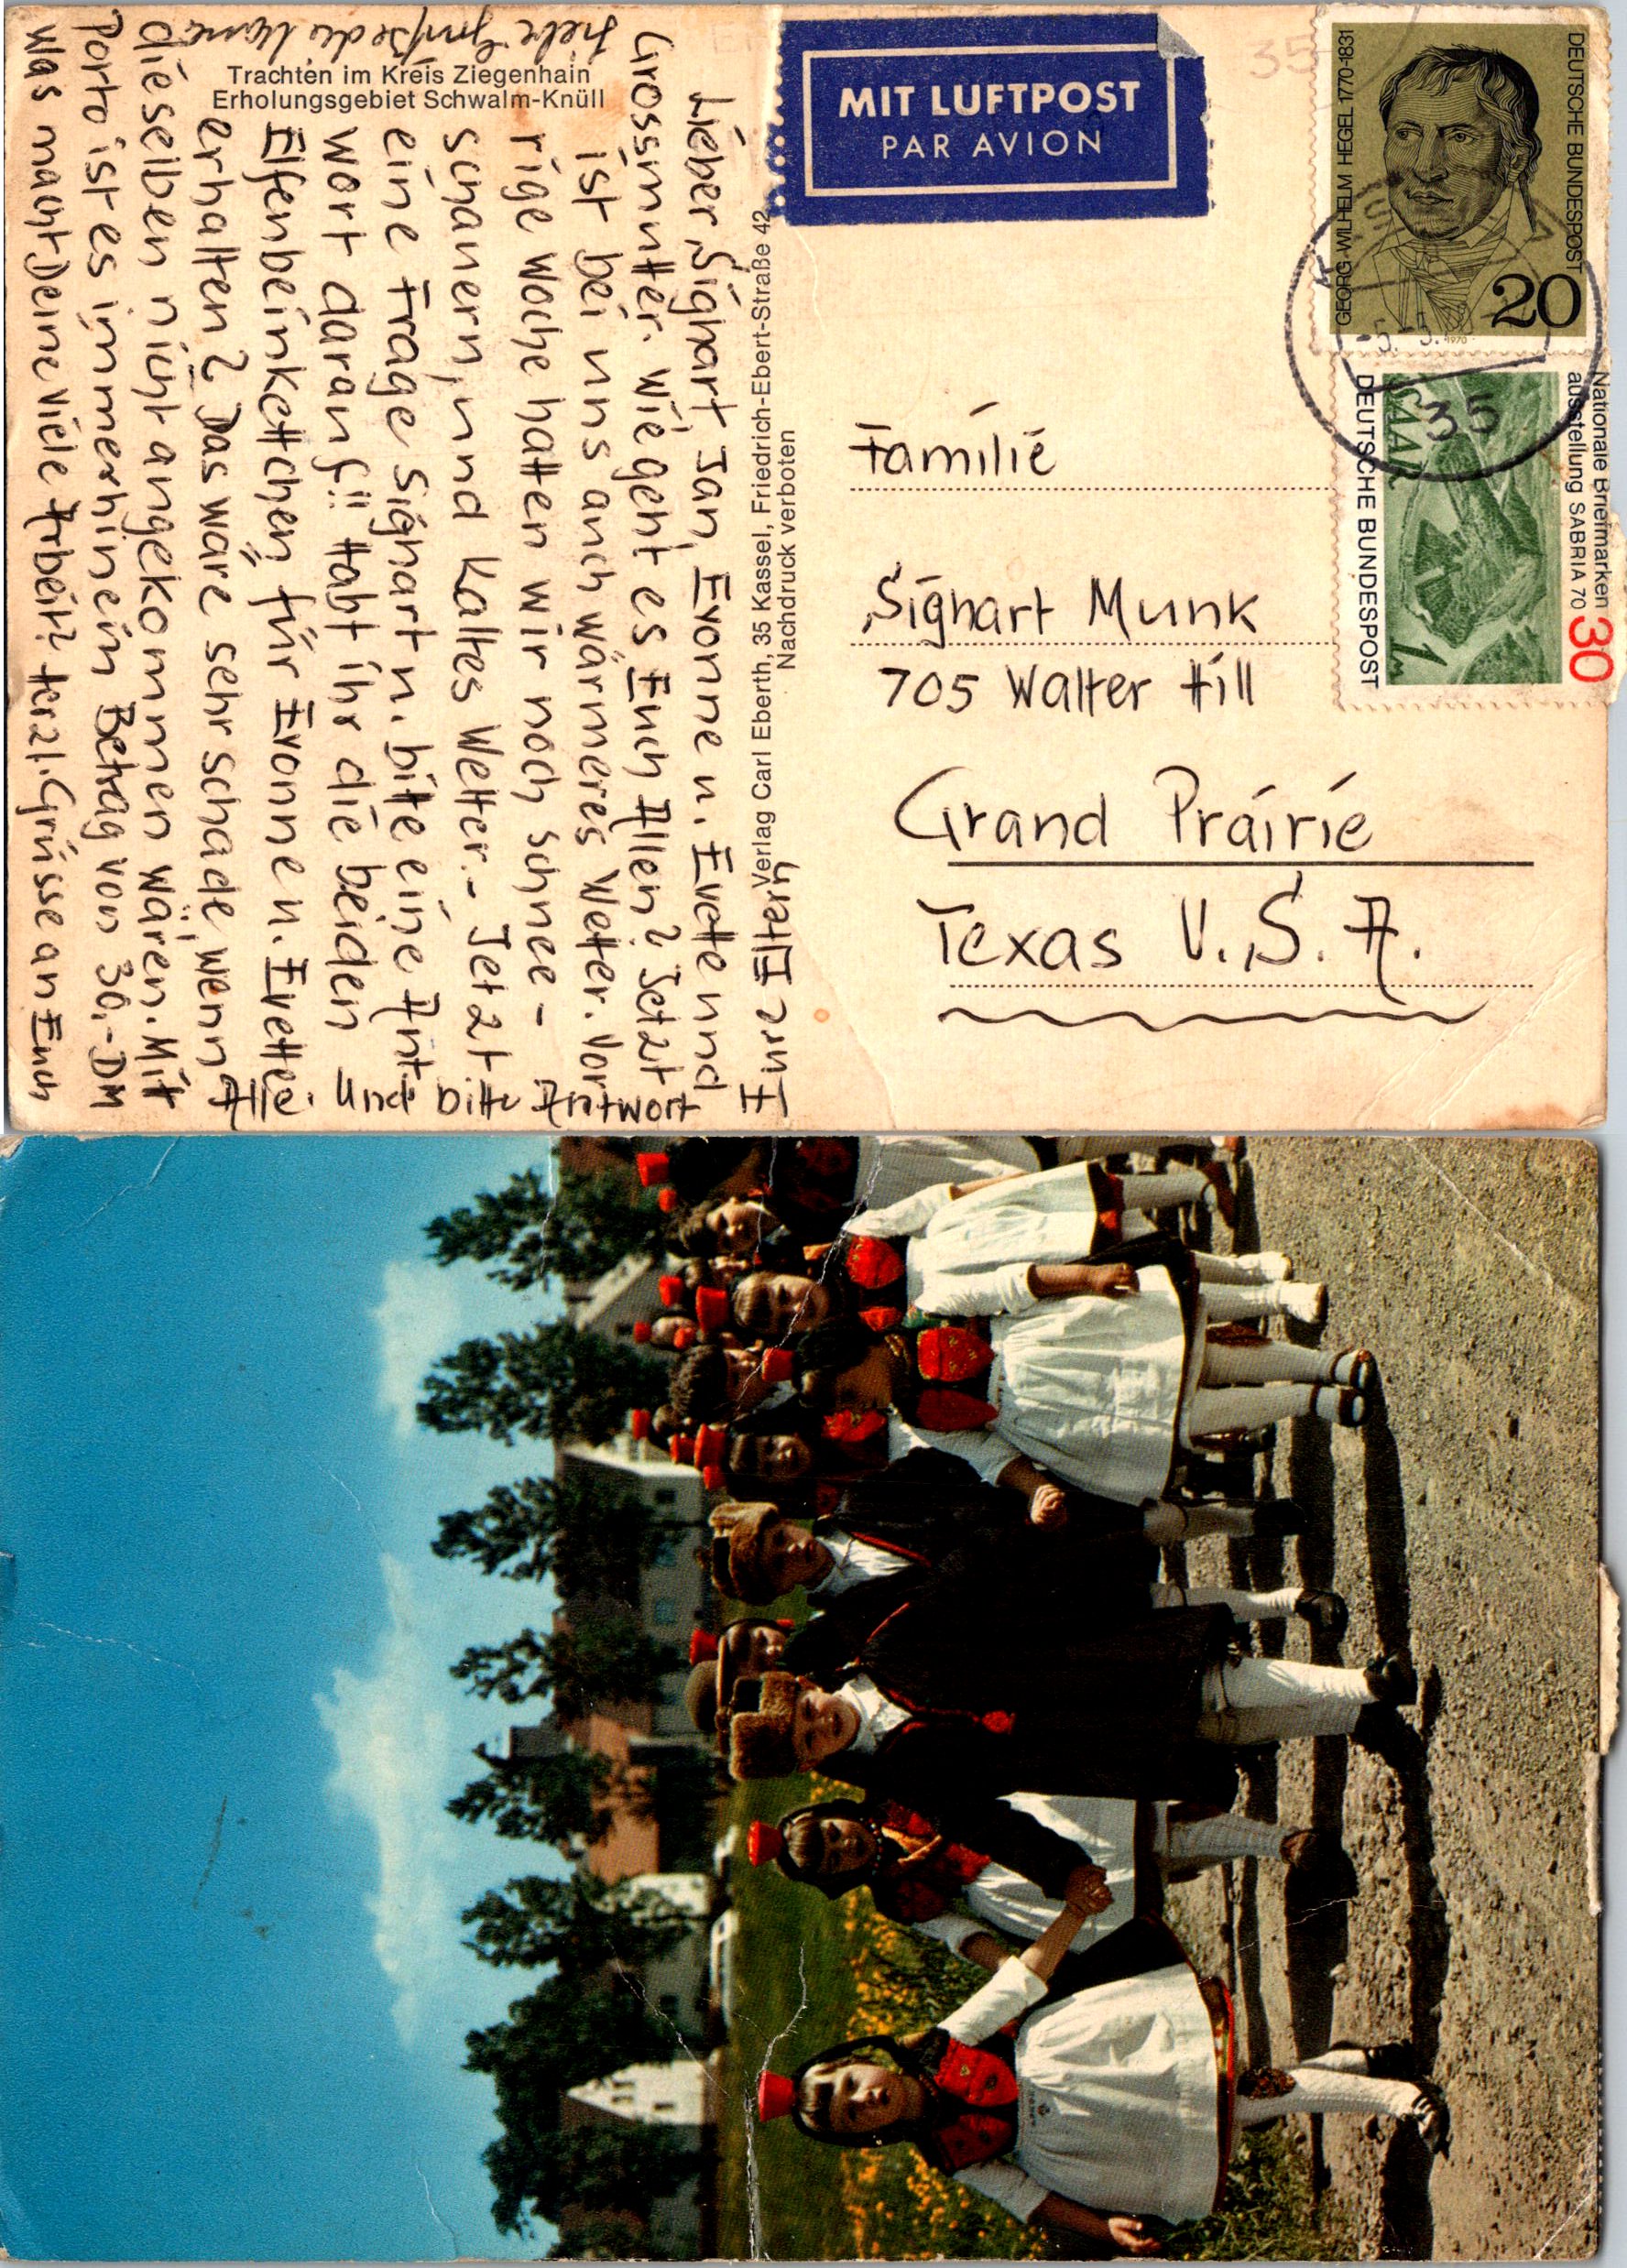 Trachten im Kreis Ziegenhain
Erholungsgebiet Schwalm-Knüll
Lieber Sighart, Jan, Evonne u. Evette und
Grossmutter. Wie geht es Euch Allen? Jetzt
ist bei uns auch wärmeres Wetter. Vor-
rige Woche hatten wir noch Schnee-
schauern, und Kaltes Wetter.- Jetzt
eine Frage Sighart u. bitte eine Ant-
wort darauf!! Habt ihr die beiden
Elfenbeinkettchen für Evonne u. Evette
erhalten? Das wäre sehr schade, wenn
dieselben nicht angekommen wären. Mit
Porto ist es immerhin ein Betrag von 30.- DM
Was macht Deine viele Arbeit? Herzl. Grüsse an Euch
Alle. Und bitte Antwort Eure Eltern
Liebe Grüße
Verlag Carl Eberth, 35 Kassel, Friedrich-Ebert-Straße 42
Nachdruck verboten
MIT LUFTPOST
PAR AVION
35
GEORG WILHELM HEGEL 1770-1831
DEUTSCHE BUNDESPOST
20
1970
Nationale Briefmarken
ausstellung SABRIA 70
30
SAAR
1 m
DEUTSCHE BUNDESPOST
35
Familie
Sighart Munk
705 Walter Hill
Grand Prairie
Texas U.S.A.